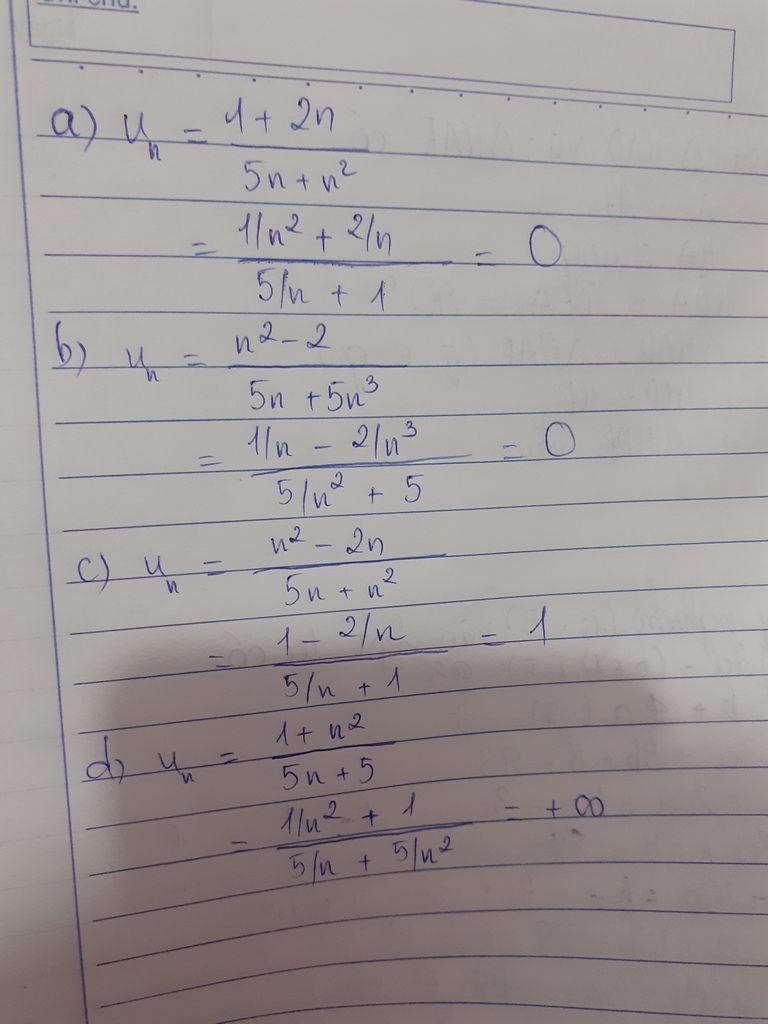 a) uₙ = (1 + 2n)/(5n + n²)
= (1/n² + 2/n)/(5/n + 1) = 0
b) uₙ = (n² - 2)/(5n + 5n³)
= (1/n - 2/n³)/(5/n² + 5) = 0
c) uₙ = (n² - 2n)/(5n + n²)
= (1 - 2/n)/(5/n + 1) = 1
d) uₙ = (1 + n²)/(5n + 5)
= (1/n² + 1)/(5/n + 5/n²) = +∞